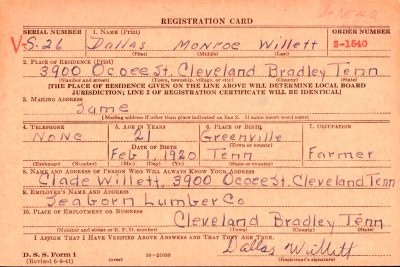 REGISTRATION CARD
SERIAL NUMBER 1. NAME (Print) ORDER NUMBER
V-S-26 Dallas Monroe Willett S-1540
(First) (Middle) (Last)
2. PLACE OF RESIDENCE (Print)
3900 Ocoee St. Cleveland Bradley Tenn
(Number and street) (Town, township, village, or city) (County) (State)
[THE PLACE OF RESIDENCE GIVEN ON THE LINE ABOVE WILL DETERMINE LOCAL BOARD
JURISDICTION; LINE 2 OF REGISTRATION CERTIFICATE WILL BE IDENTICAL]
3. MAILING ADDRESS
Same
[Mailing address if other than place indicated on line 2. If same insert word same]
4. TELEPHONE 5. AGE IN YEARS 6. PLACE OF BIRTH 7. OCCUPATION
None 21 Greenville
DATE OF BIRTH (Town or county)
Feb 1 1920 Tenn Farmer
(Exchange) (Number) (Mo.) (Day) (Yr.) (State or country)
8. NAME AND ADDRESS OF PERSON WHO WILL ALWAYS KNOW YOUR ADDRESS
Clade Willett, 3900 Ocoee St. Cleveland Tenn
9. EMPLOYER'S NAME AND ADDRESS
Seaborn Lumber Co
10. PLACE OF EMPLOYMENT OR BUSINESS
Cleveland Bradley Tenn
(Number and street or R. F. D. number) (Town) (County) (State)
I AFFIRM THAT I HAVE VERIFIED ABOVE ANSWERS AND THAT THEY ARE TRUE.
Dallas Willett
D. S. S. Form 1
(Revised 6-9-41) (over) 16-21630 (Registrant's signature)